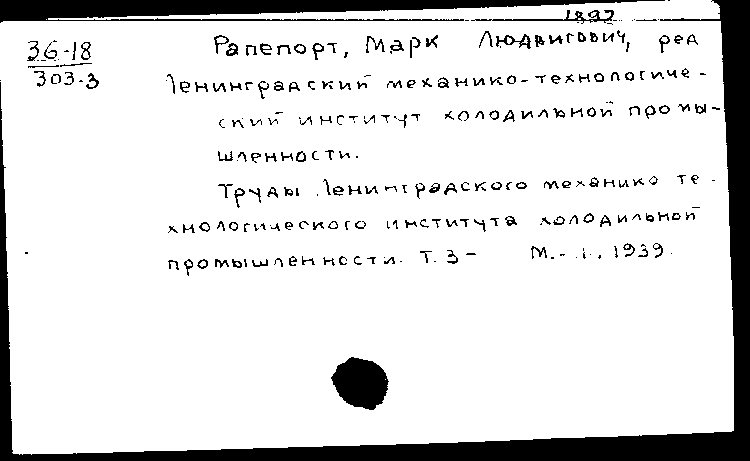 1892
36-18 Рапепорт, Марк Людвигович, ред
303-3
Ленинградский механико-технологиче-
ский институт холодильной промы-
шленности.
Труды Ленинградского механико те-
хнологического института холодильной
промышленности. Т. 3- М.-Л., 1939.